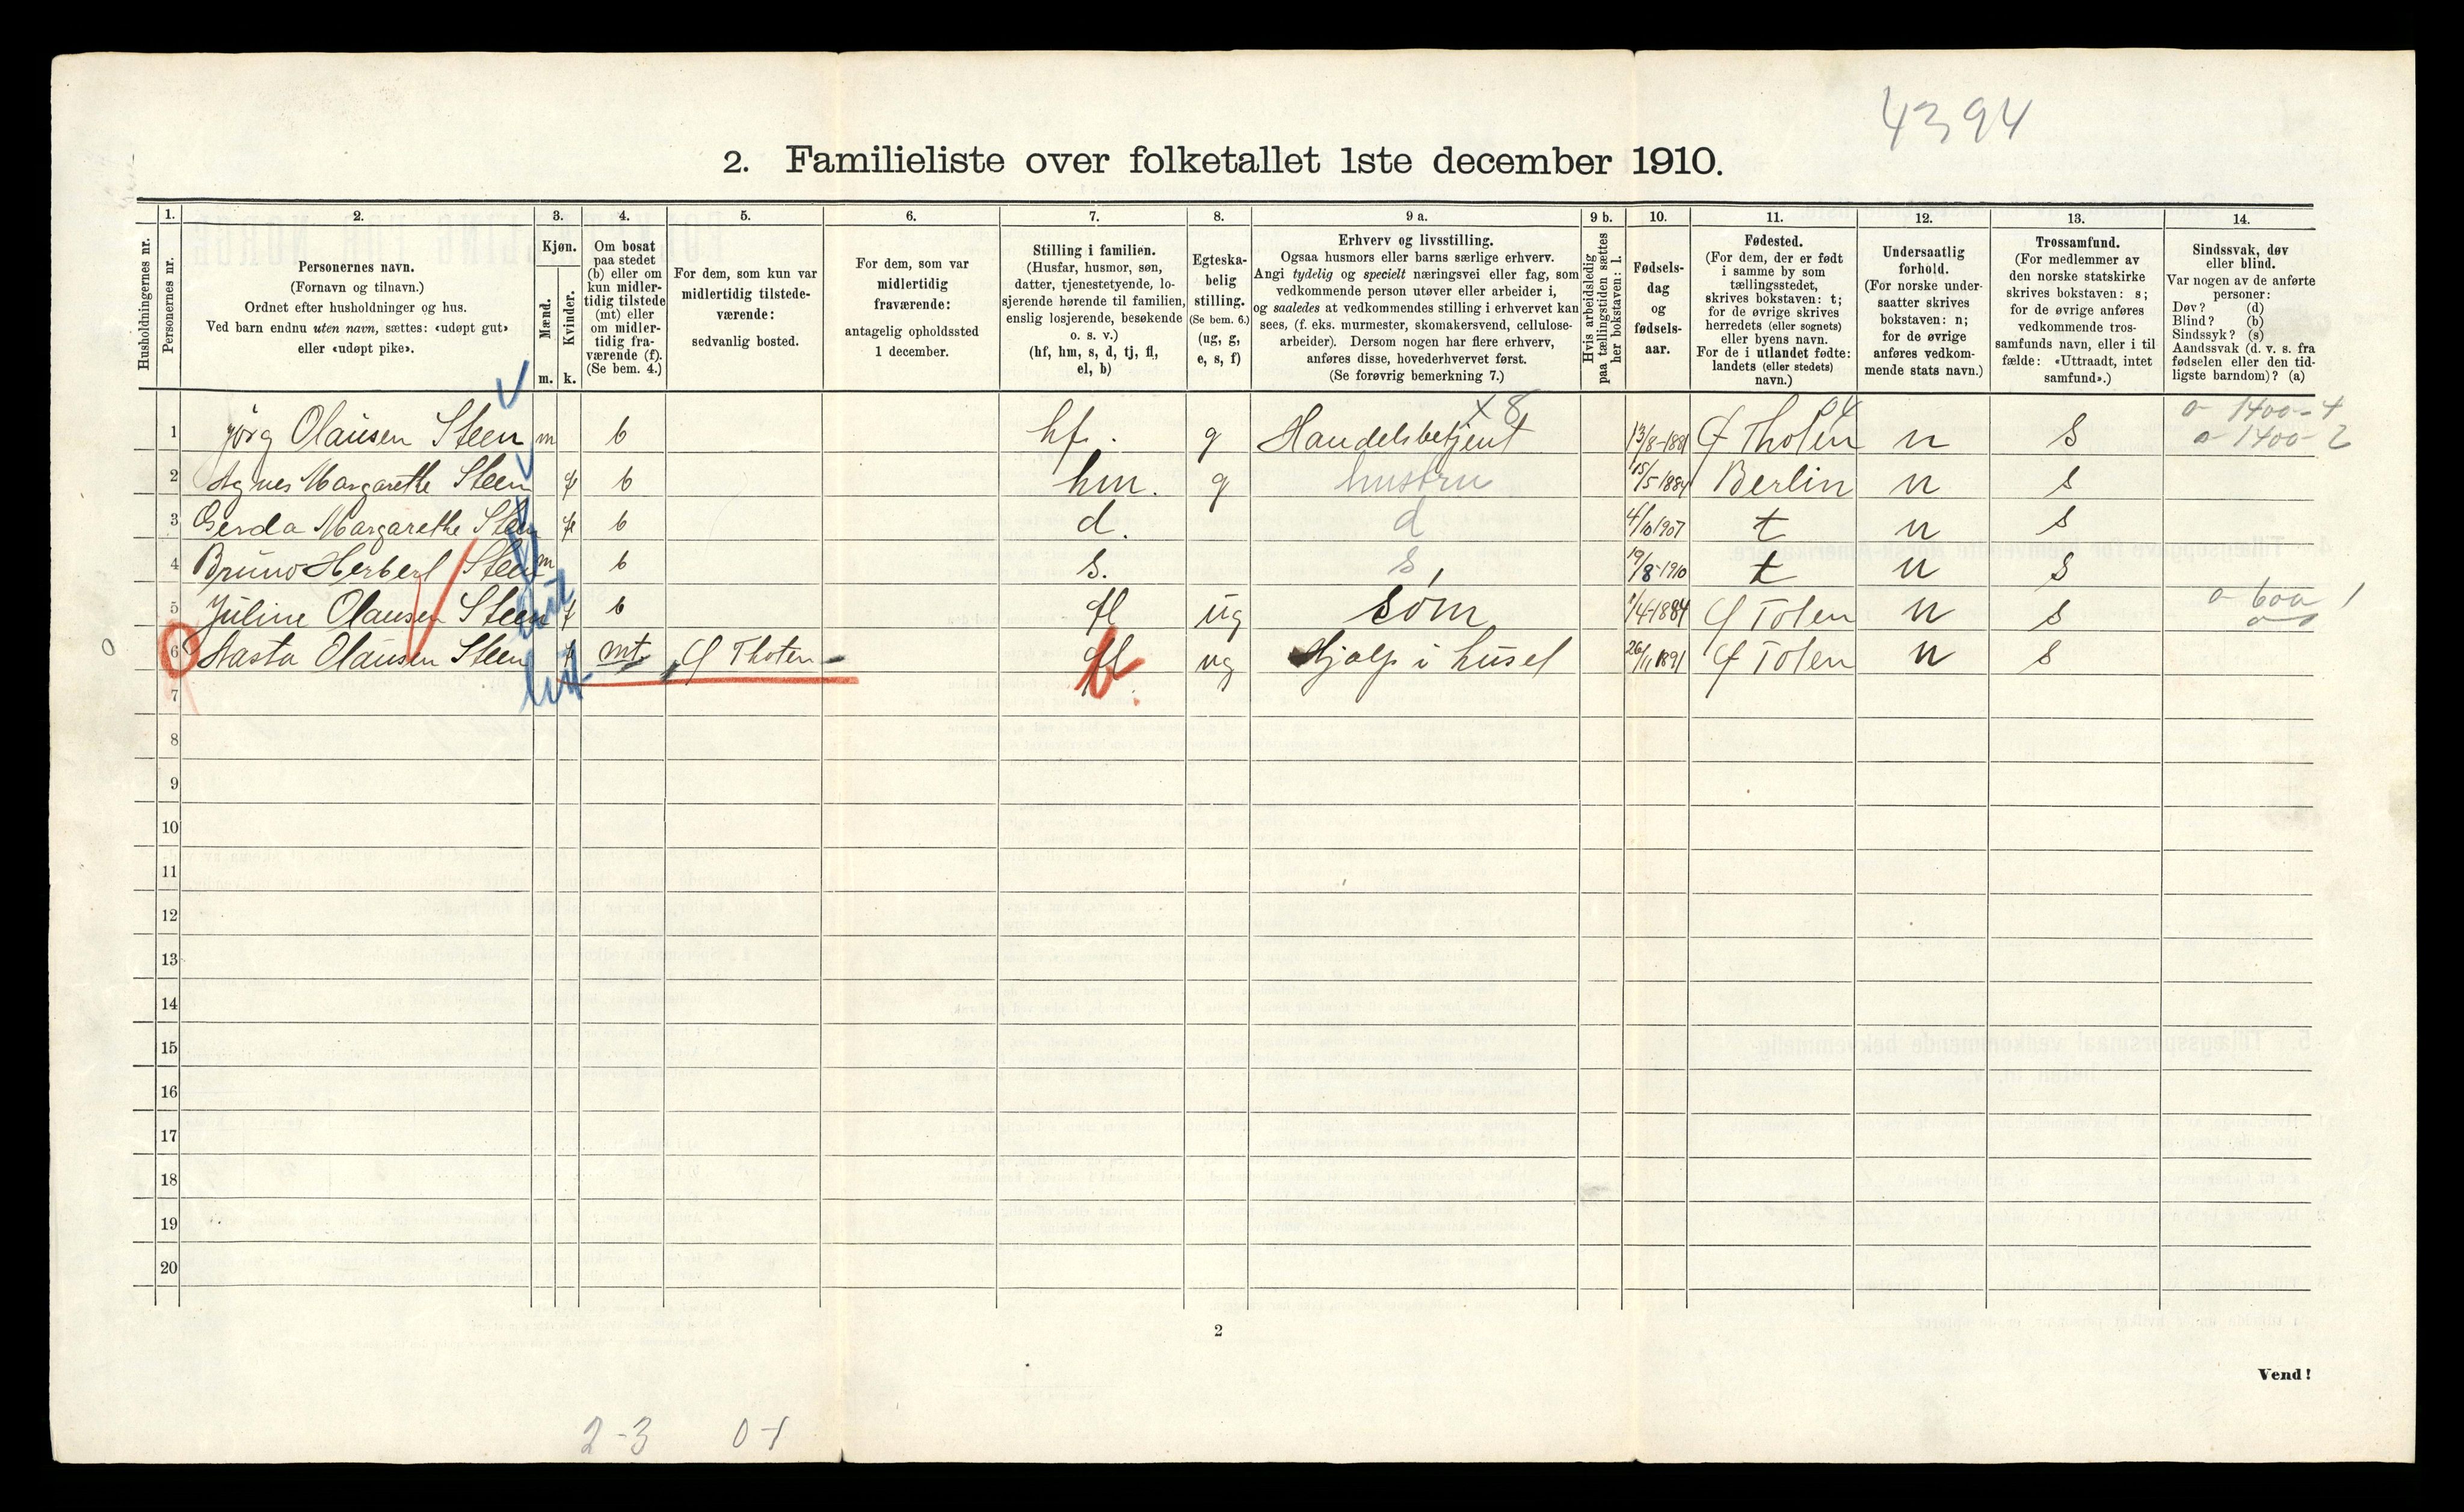 4394
2. Familieliste over folketallet 1ste december 1910.
Husholdningernes nr.
1.
Personernes nr.
2.
Personernes navn.
(Fornavn og tilnavn.)
Ordnet efter husholdninger og hus.
Ved barn endnu uten navn, sættes: «udøpt gut»
eller «udøpt pike».
3.
Kjøn.
Mænd.
Kvinder.
m. k.
4.
Om bosat
paa stedet
(b) eller om
kun midler-
tidig tilstede
(mt) eller
om midler-
tidig fra-
værende (f).
(Se bem. 4.)
5.
For dem, som kun var
midlertidig tilstede-
værende:
sedvanlig bosted.
6.
For dem, som var
midlertidig
fraværende:
antagelig opholdssted
1 december.
7.
Stilling i familien.
(Husfar, husmor, søn,
datter, tjenestetyende, lo-
sjerende hørende til familien,
enslig losjerende, besøkende
o. s. v.)
(hf, hm, s, d, tj, fl,
el, b)
8.
Egteska-
belig
stilling.
(Se bem. 6.)
(ug, g,
e, s, f)
9 a.
Erhverv og livsstilling.
Ogsaa husmors eller barns særlige erhverv.
Angi tydelig og specielt næringsvei eller fag, som
vedkommende person utøver eller arbeider i,
og saaledes at vedkommendes stilling i erhvervet kan
sees, (f. eks. murmester, skomakersvend, cellulose-
arbeider). Dersom nogen har flere erhverv,
anføres disse, hovederhvervet først.
(Se forøvrig bemerkning 7.)
9 b.
Hvis arbeidsledig
paa tællingstiden sættes
her bokstaven: l.
10.
Fødsels-
dag
og
fødsels-
aar.
11.
Fødested.
(For dem, der er født
i samme by som
tællingsstedet,
skrives bokstaven: t;
for de øvrige skrives
herredets (eller sognets)
eller byens navn.
For de i utlandet fødte:
landets (eller stedets)
navn.)
12.
Undersaatlig
forhold.
(For norske under-
saatter skrives
bokstaven: n;
for de øvrige
anføres vedkom-
mende stats navn.)
13.
Trossamfund.
(For medlemmer av
den norske statskirke
skrives bokstaven: s;
for de øvrige anføres
vedkommende tros-
samfunds navn, eller i til
fælde: «Uttraadt, intet
samfund».)
14.
Sindssvak, døv
eller blind.
Var nogen av de anførte
personer:
Døv? (d)
Blind? (b)
Sindssyk? (s)
Aandssvak (d. v. s. fra
fødselen eller den tid-
ligste barndom)? (a)
x 8 04 o 1400-4
1 Jørg Olausen Steen m b hf. g Handelsbetjent 13/8-1881 Ø Tholen n s o 1400-2
2 Agnes Margarethe Steen k b hm. g hustru 15/5-1884 Berlin n s
3 Gerda Margarethe Steen k b d. d 4/10 1907 t n s
4 Bruno Herbert Steen m b s. s, 19/8-1910 t n s
5 Juline Olausen Steen k b fl ug søm 1/4-1884 Ø Toten n s o 600 1
0 6 Aasta Olausen Steen k mt Ø Thoten fl b. ug Hjælp i huset 26/11 1891 Ø Toten n s
7
8
9
10
11
12
13
14
15
16
17
18
19
20
2
Vend!
2-3 0-1